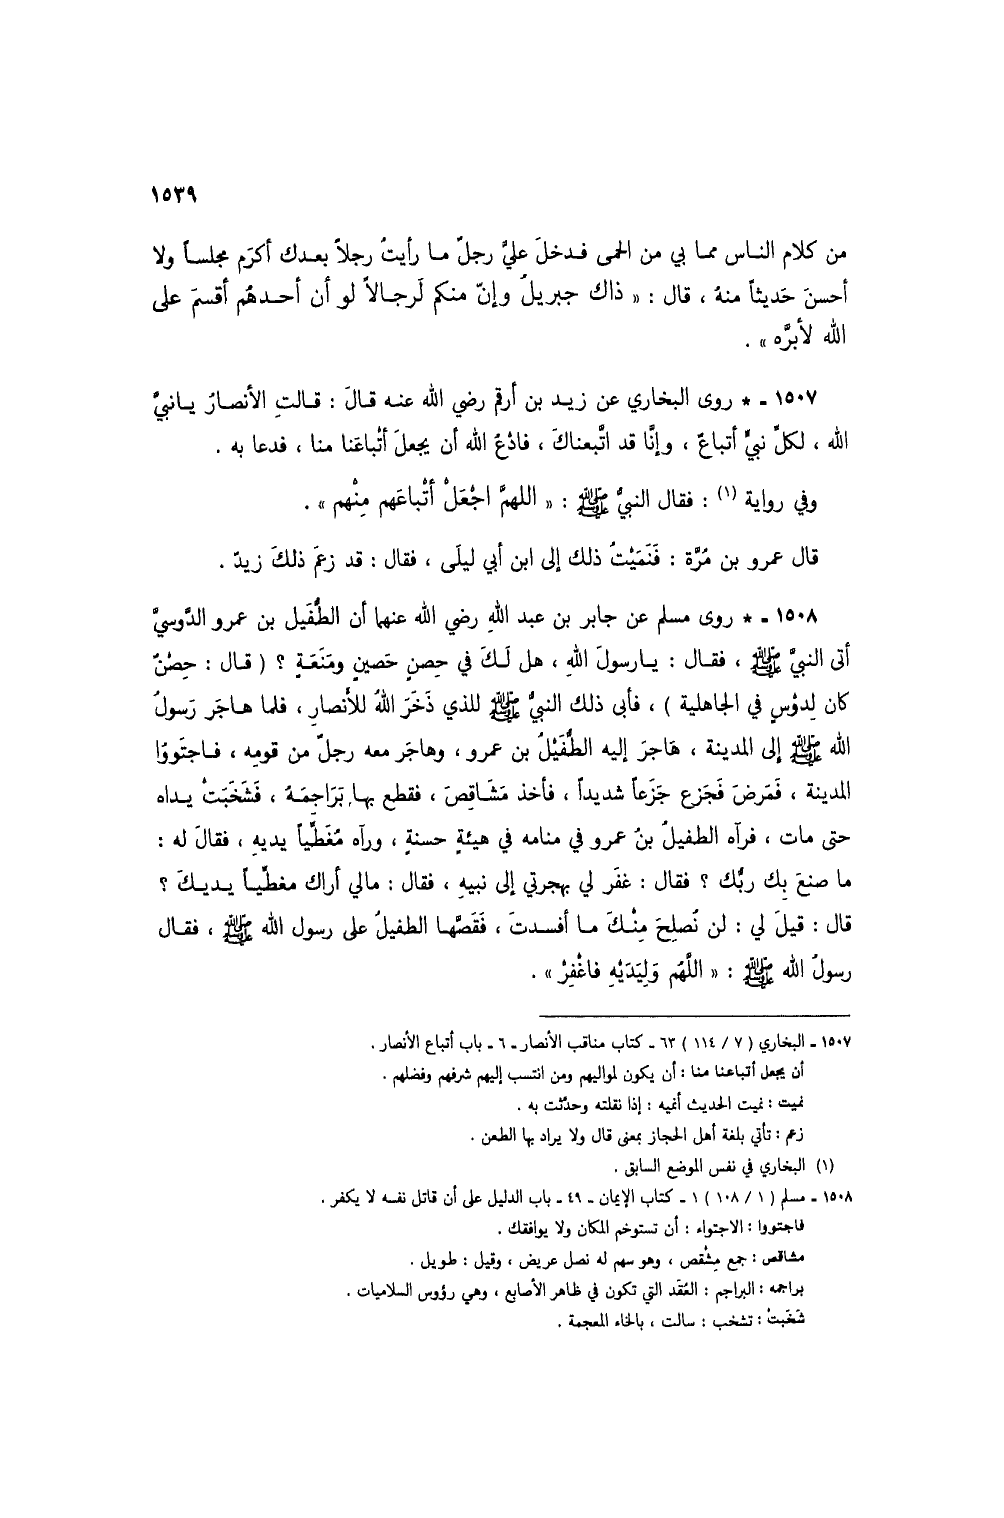 ١٥٣٩
من كلام الناس مما بي من الحمى فدخلَ عليَّ رجلٌ ما رأيتُ رجلاً بعدك أكرَم مجلساً ولا
أحسنَ حَديثاً منهُ ، قال : « ذاك جبريلُ وإنّ منكم لَرجالاً لو أن أحدهُم أقسمَ على
الله لأبرَّه » .
١٥٠٧ - * روى البخاري عن زيد بن أرقم رضي الله عنه قالَ : قالتِ الأنصارُ يانبيَّ
الله ، لكلِّ نبيٍّ أتباعٌ ، وإنَّا قد اتَّبعناكَ ، فادْعُ الله أن يجعلَ أتْباعَنا منا ، فدعا به .
وفي رواية (١) : فقال النبيُّ ﷺ : « اللهمَّ اجْعَلْ أتْباعَهم مِنْهم » .
قال عمرو بن مُرَّة : فَنَمَيْتُ ذلك إلى ابن أبي ليلَى ، فقال : قد زعَمَ ذلكَ زيدٌ .
١٥٠٨ - * روى مسلم عن جابر بن عبد اللهِ رضي الله عنهما أن الطُّفَيل بن عمرو الدَّوسيَّ
أتى النبيَّ ﷺ ، فقال : يارسولَ اللهِ ، هل لَكَ في حِصنٍ حَصينٍ ومَنَعَةٍ ؟ ( قال : حِصْنٌ
كان لِدوْسٍ في الجاهلية ) ، فأبى ذلك النبيُّ ﷺ للذي ذَخَرَ اللهُ للأَنصارِ ، فلما هاجَر رَسولُ
الله ﷺ إلى المدينة ، هَاجرَ إليه الطُّفَيْلُ بن عمرو ، وهاجَر معه رجلٌ من قومِه ، فاجتَووْا
المدينة ، فَمَرضَ فَجَزع جَزَعاً شديداً ، فأخذ مَشَاقِصَ ، فقطع بها بَرَاجِمَهُ ، فَشَخَبَتْ يداه
حتى مات ، فرآه الطفيلُ بنُ عمرو في منامه في هيئةٍ حسنةٍ ، ورآه مُغَطِّياً يديهِ ، فقالَ له :
ما صنعَ بِك ربُّك ؟ فقال : غفَر لي بهجرتي إلى نبيهِ ، فقال : مالي أراك مغطِّياً يديكَ ؟
قال : قيلَ لي : لن نُصلِحَ مِنْكَ ما أفسدتَ ، فَقَصَّها الطفيلُ على رسول الله ﷺ ، فقال
رسولُ الله ﷺ : « اللَّهُم وَلِيَدَيْهِ فاغْفِرْ » .
١٥٠٧ - البخاري ( ٧ / ١١٤ ) ٦٣ - كتاب مناقب الأنصار - ٦ - باب أتباع الأنصار .
أن يجعل أتباعنا منا : أن يكون لمواليهم ومن انتسب إليهم شرفهم وفضلهم .
نميت : نميت الحديث أنميه : إذا نقلته وحدّثت به .
زعم : تأتي بلغة أهل الحجاز بمعنى قال ولا يراد بها الطعن .
(١) البخاري في نفس الموضع السابق .
١٥٠٨ - مسلم ( ١ / ١٠٨ ) ١ - كتاب الإيمان - ٤٩ - باب الدليل على أن قاتل نفسه لا يكفر .
فاجتووا : الاجتواء : أن تستوخم المكان ولا يوافقك .
مشاقص : جمع مِشْقص ، وهو سهم له نصل عريض ، وقيل : طويل .
براجمه : البراجم : العُقَد التي تكون في ظاهر الأصابع ، وهي رؤوس السلاميات .
شَخَبتْ : تشخب : سالت ، بالخاء المعجمة .